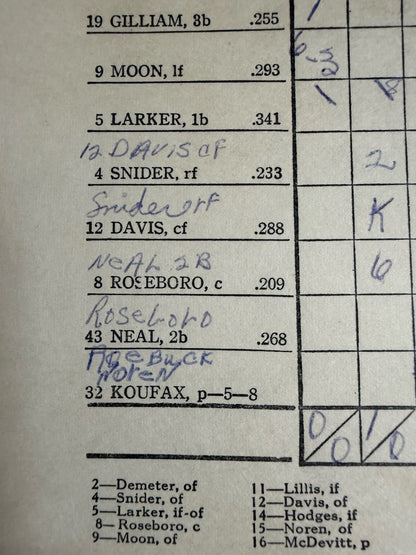 19 GILLIAM, 3b .255 1
9 MOON, lf .293 6-3
5 LARKER, 1b .341 1
12 DAVIS CF
4 SNIDER, rf .233 2
Snider rF
12 DAVIS, cf .288 K
NeAL 2B
8 ROSEBORO, c .209 6
Roseboro
43 NEAL, 2b .268
ROEBUCK
NOREN
32 KOUFAX, p—5—8
0/0 1/0
2—Demeter, of
4—Snider, of
5—Larker, if-of
8—Roseboro, c
9—Moon, of
11—Lillis, if
12—Davis, of
14—Hodges, if
15—Noren, of
16—McDevitt, p